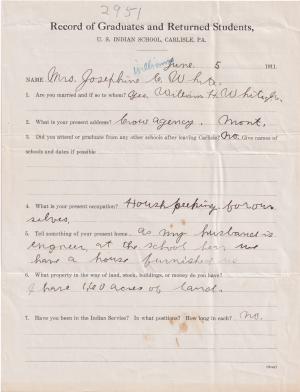 2951
Record of Graduates and Returned Students,
U. S. INDIAN SCHOOL, CARLISLE, PA.
June 5 1911.
williams
NAME Mrs. Josephine C. White
1. Are you married and if so to whom? Yes William H. White
2. What is your present address? Crow agency. Mont.
3. Did you attend or graduate from any other schools after leaving Carlisle? No. Give names of
schools and dates if possible
4. What is your present occupation? Housekeeping for our
selves,
5. Tell something of your present home. as my husband is
engineer at the school here we
have a house furnished
6. What property in the way of land, stock, buildings, or money do you have?
I have 160 acres of land.
7. Have you been in the Indian Service? In what positions? How long in each? No.
(Over)